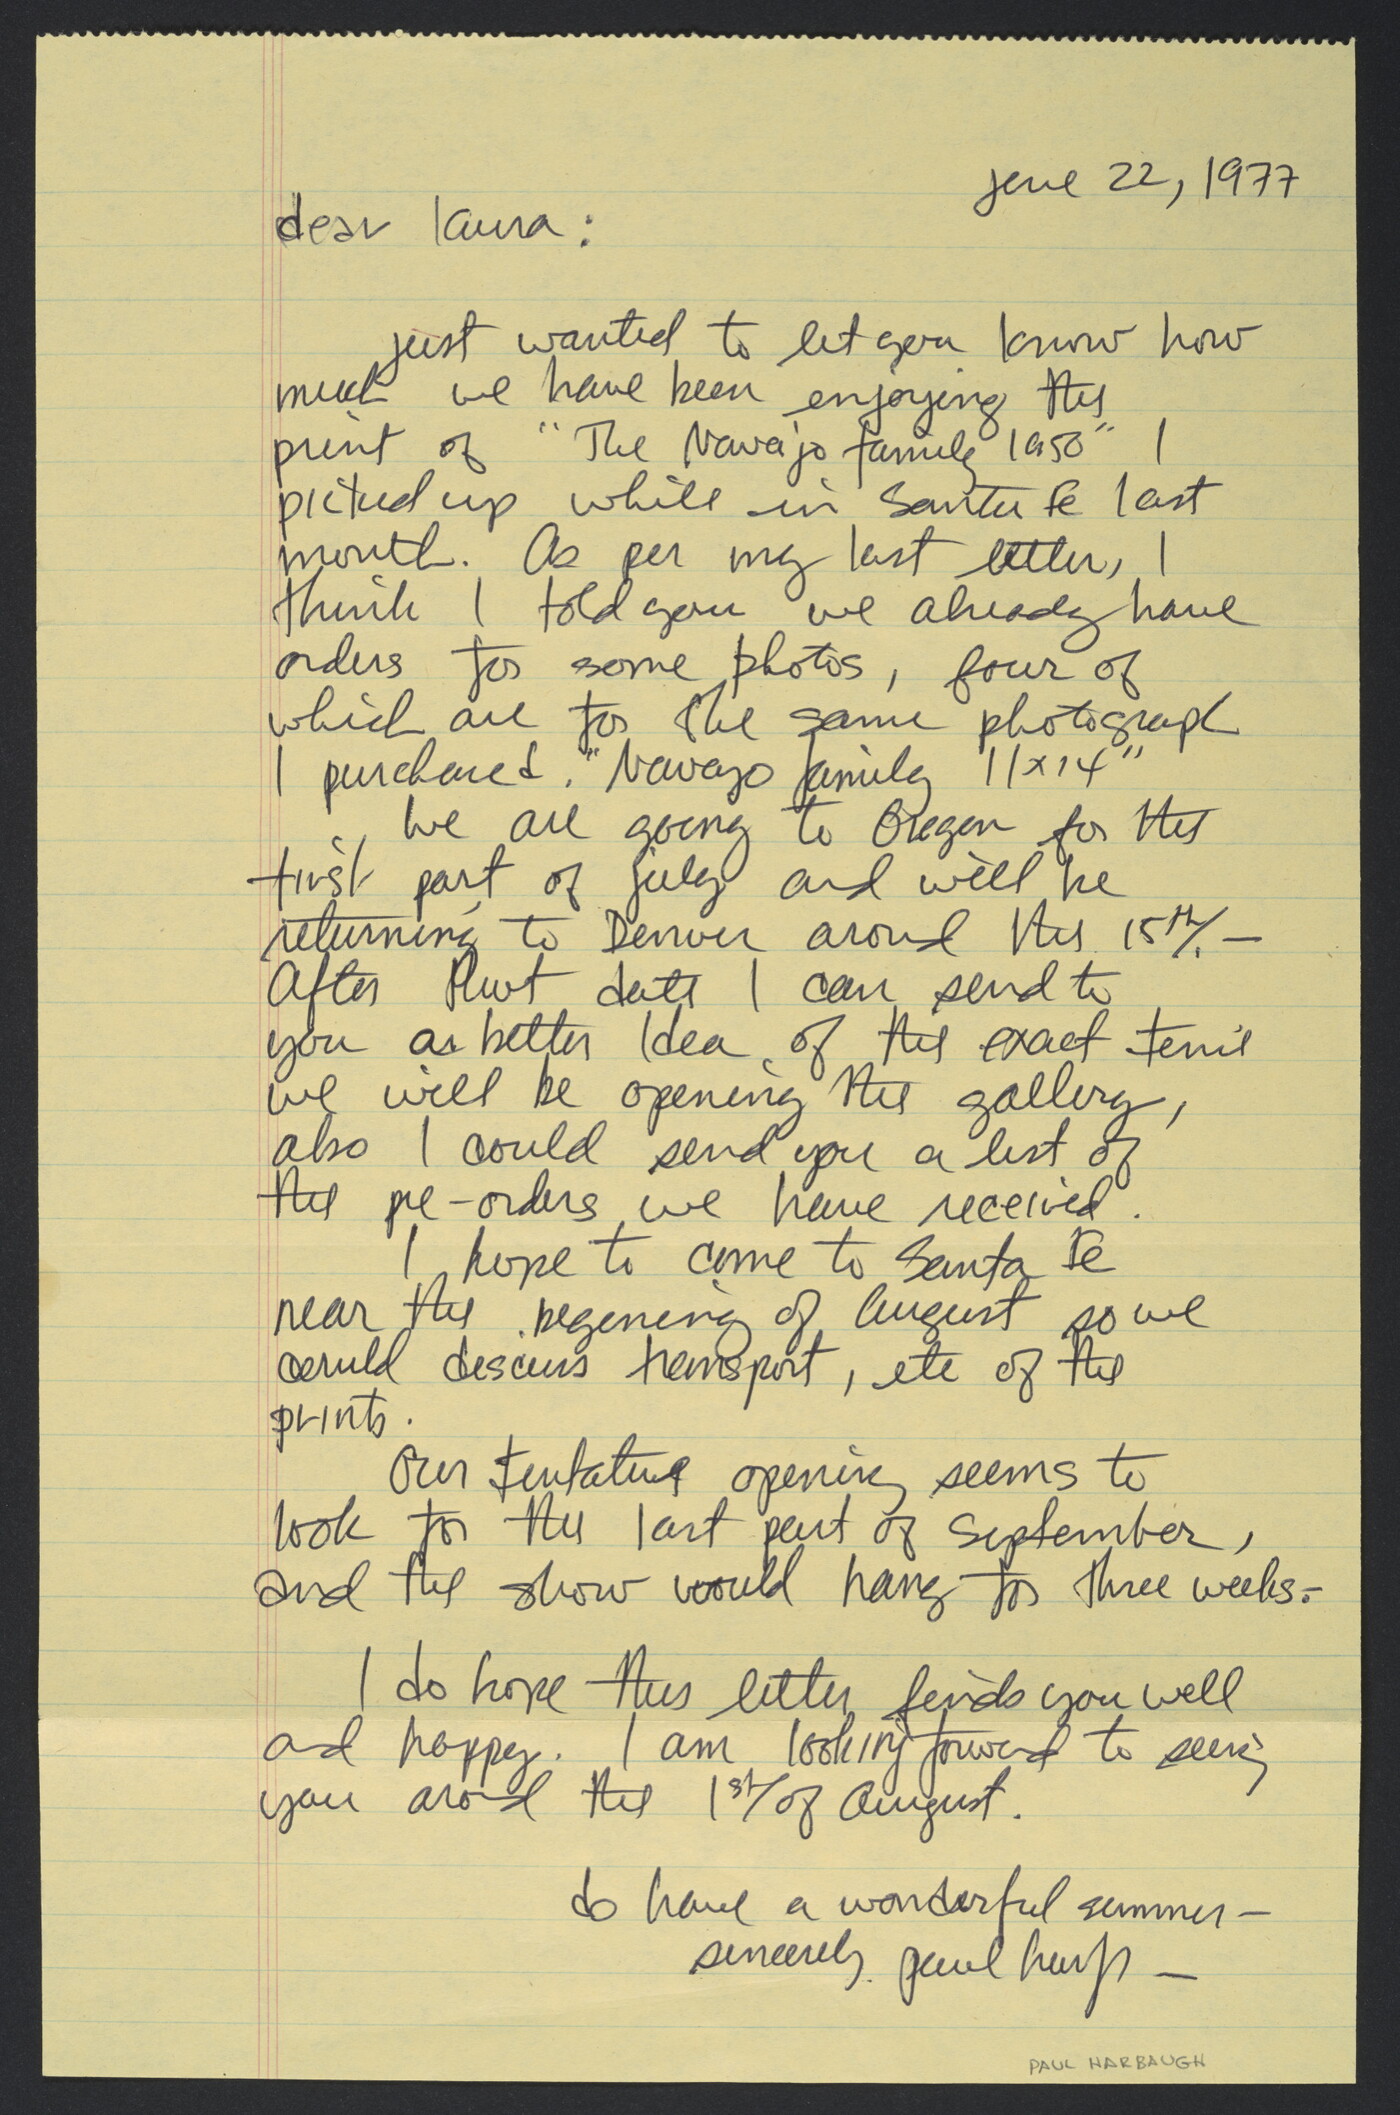 june 22, 1977
dear laura:
just wanted to let you know how
much we have been enjoying the
print of "The Navajo family 1950" I
picked up while in Santa Fe last
month. As per my last letter, I
think I told you we already have
orders for some photos, four of
which are for the same photograph
I purchased. "Navajo family 11x14"
We are going to Oregon for the
first part of july and will be
returning to Denver around the 15th. —
After that date I can send to
you a better Idea of the exact time
we will be opening the gallery,
also I could send you a list of
the pre-orders we have received.
I hope to come to Santa Fe
near the begening of August so we
could discuss transport, etc of the
prints.
Our tentative opening seems to
look for the last part of September,
and the show would hang for three weeks. -
I do hope this letter finds you well
and happy. I am looking forward to seeing
you around the 1st of August.
do have a wonderful summer —
sincerely paul —
PAUL HARBAUGH